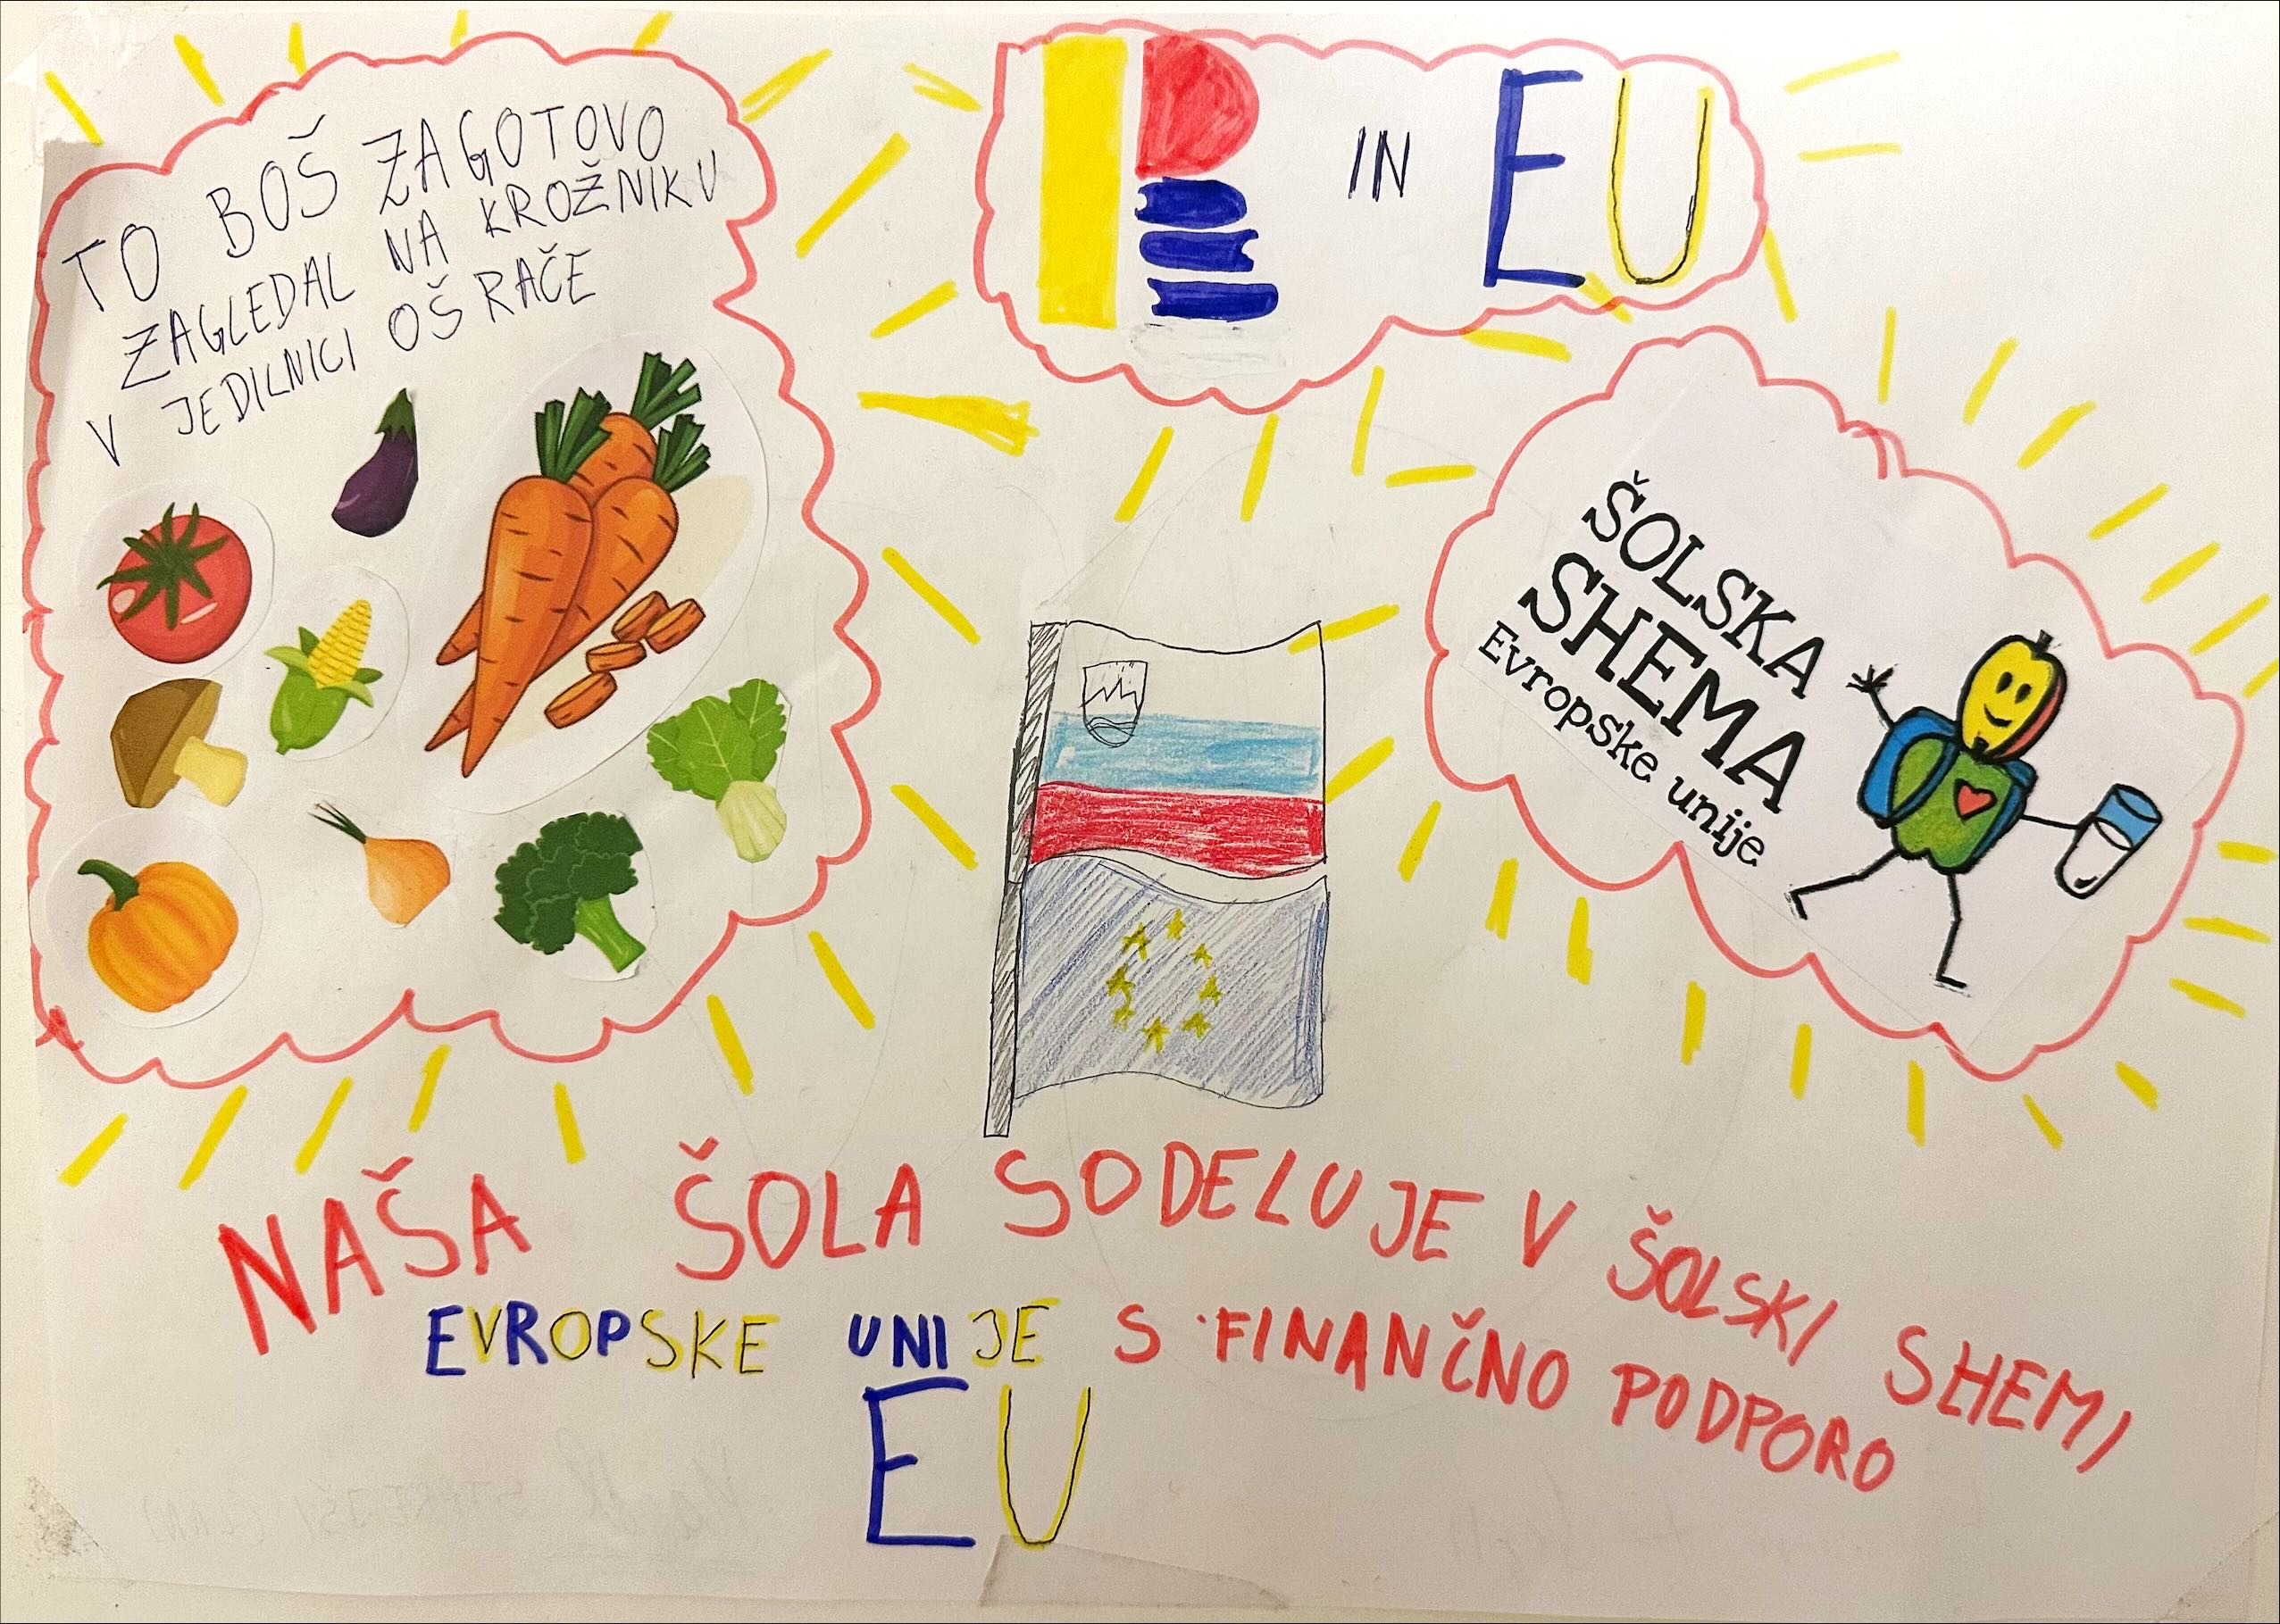 TO BOŠ ZAGOTOVO
ZAGLEDAL NA KROŽNIKU
V JEDILNICI OŠ RAČE
IN EU
ŠOLSKA
SHEMA
Evropske unije
NAŠA ŠOLA SODELUJE V ŠOLSKI SHEMI
EVROPSKE UNIJE S FINANČNO PODPORO
EU